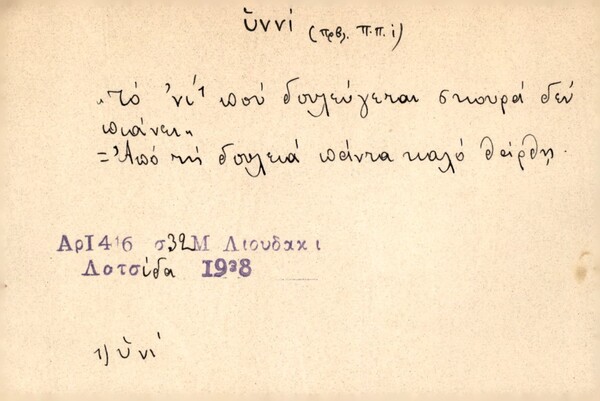 ὕννί (πρβ. π.π. ί)
„Τό 'νί¹ πού δουλεύγεται σκουρά δέν
πιάνει„
= Ἀπό τή δουλειά πάντα καλό θἄρθῃ.
Αρ1416 σ32 Μ Λιουδακι
Λατσίδα 1938
1) ὑνί